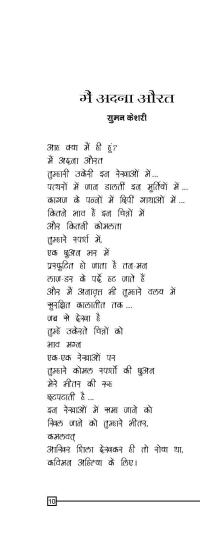 मैं अदना औरत
सुमन केशरी
आह क्या मैं ही हूं?
मैं अदना औरत
तुम्हारी उकेरी इन रेखाओं में...
पत्थरों में जान डालतीं इन मूर्तियों में...
कागज के पन्नों में छिपीं गाथाओं में...
कितने भाव हैं इन चित्रों में
और कितनी कोमलता
तुम्हारे स्पर्श में,
एक छुअन भर में
प्रस्फुटित हो जाता है तन-मन
लाज-डर के पर्दे हट जाते हैं
और मैं अनावृत्त भी तुम्हारे वलय में
सुरक्षित कालातीत तक...
जब से देखा है
तुम्हें उकेरते चित्रों को
भाव मग्न
एक-एक रेखाओं पर
तुम्हारे कोमल स्पर्शों की छुअन
मेरे भीतर की रूह
छटपटाती है...
इन रेखाओं में समा जाने को
खिल जाने को तुम्हारे भीतर,
कमलवत्
आखिर शिला देखकर ही तो रोया था,
कविमन अहिल्या के लिए।
10